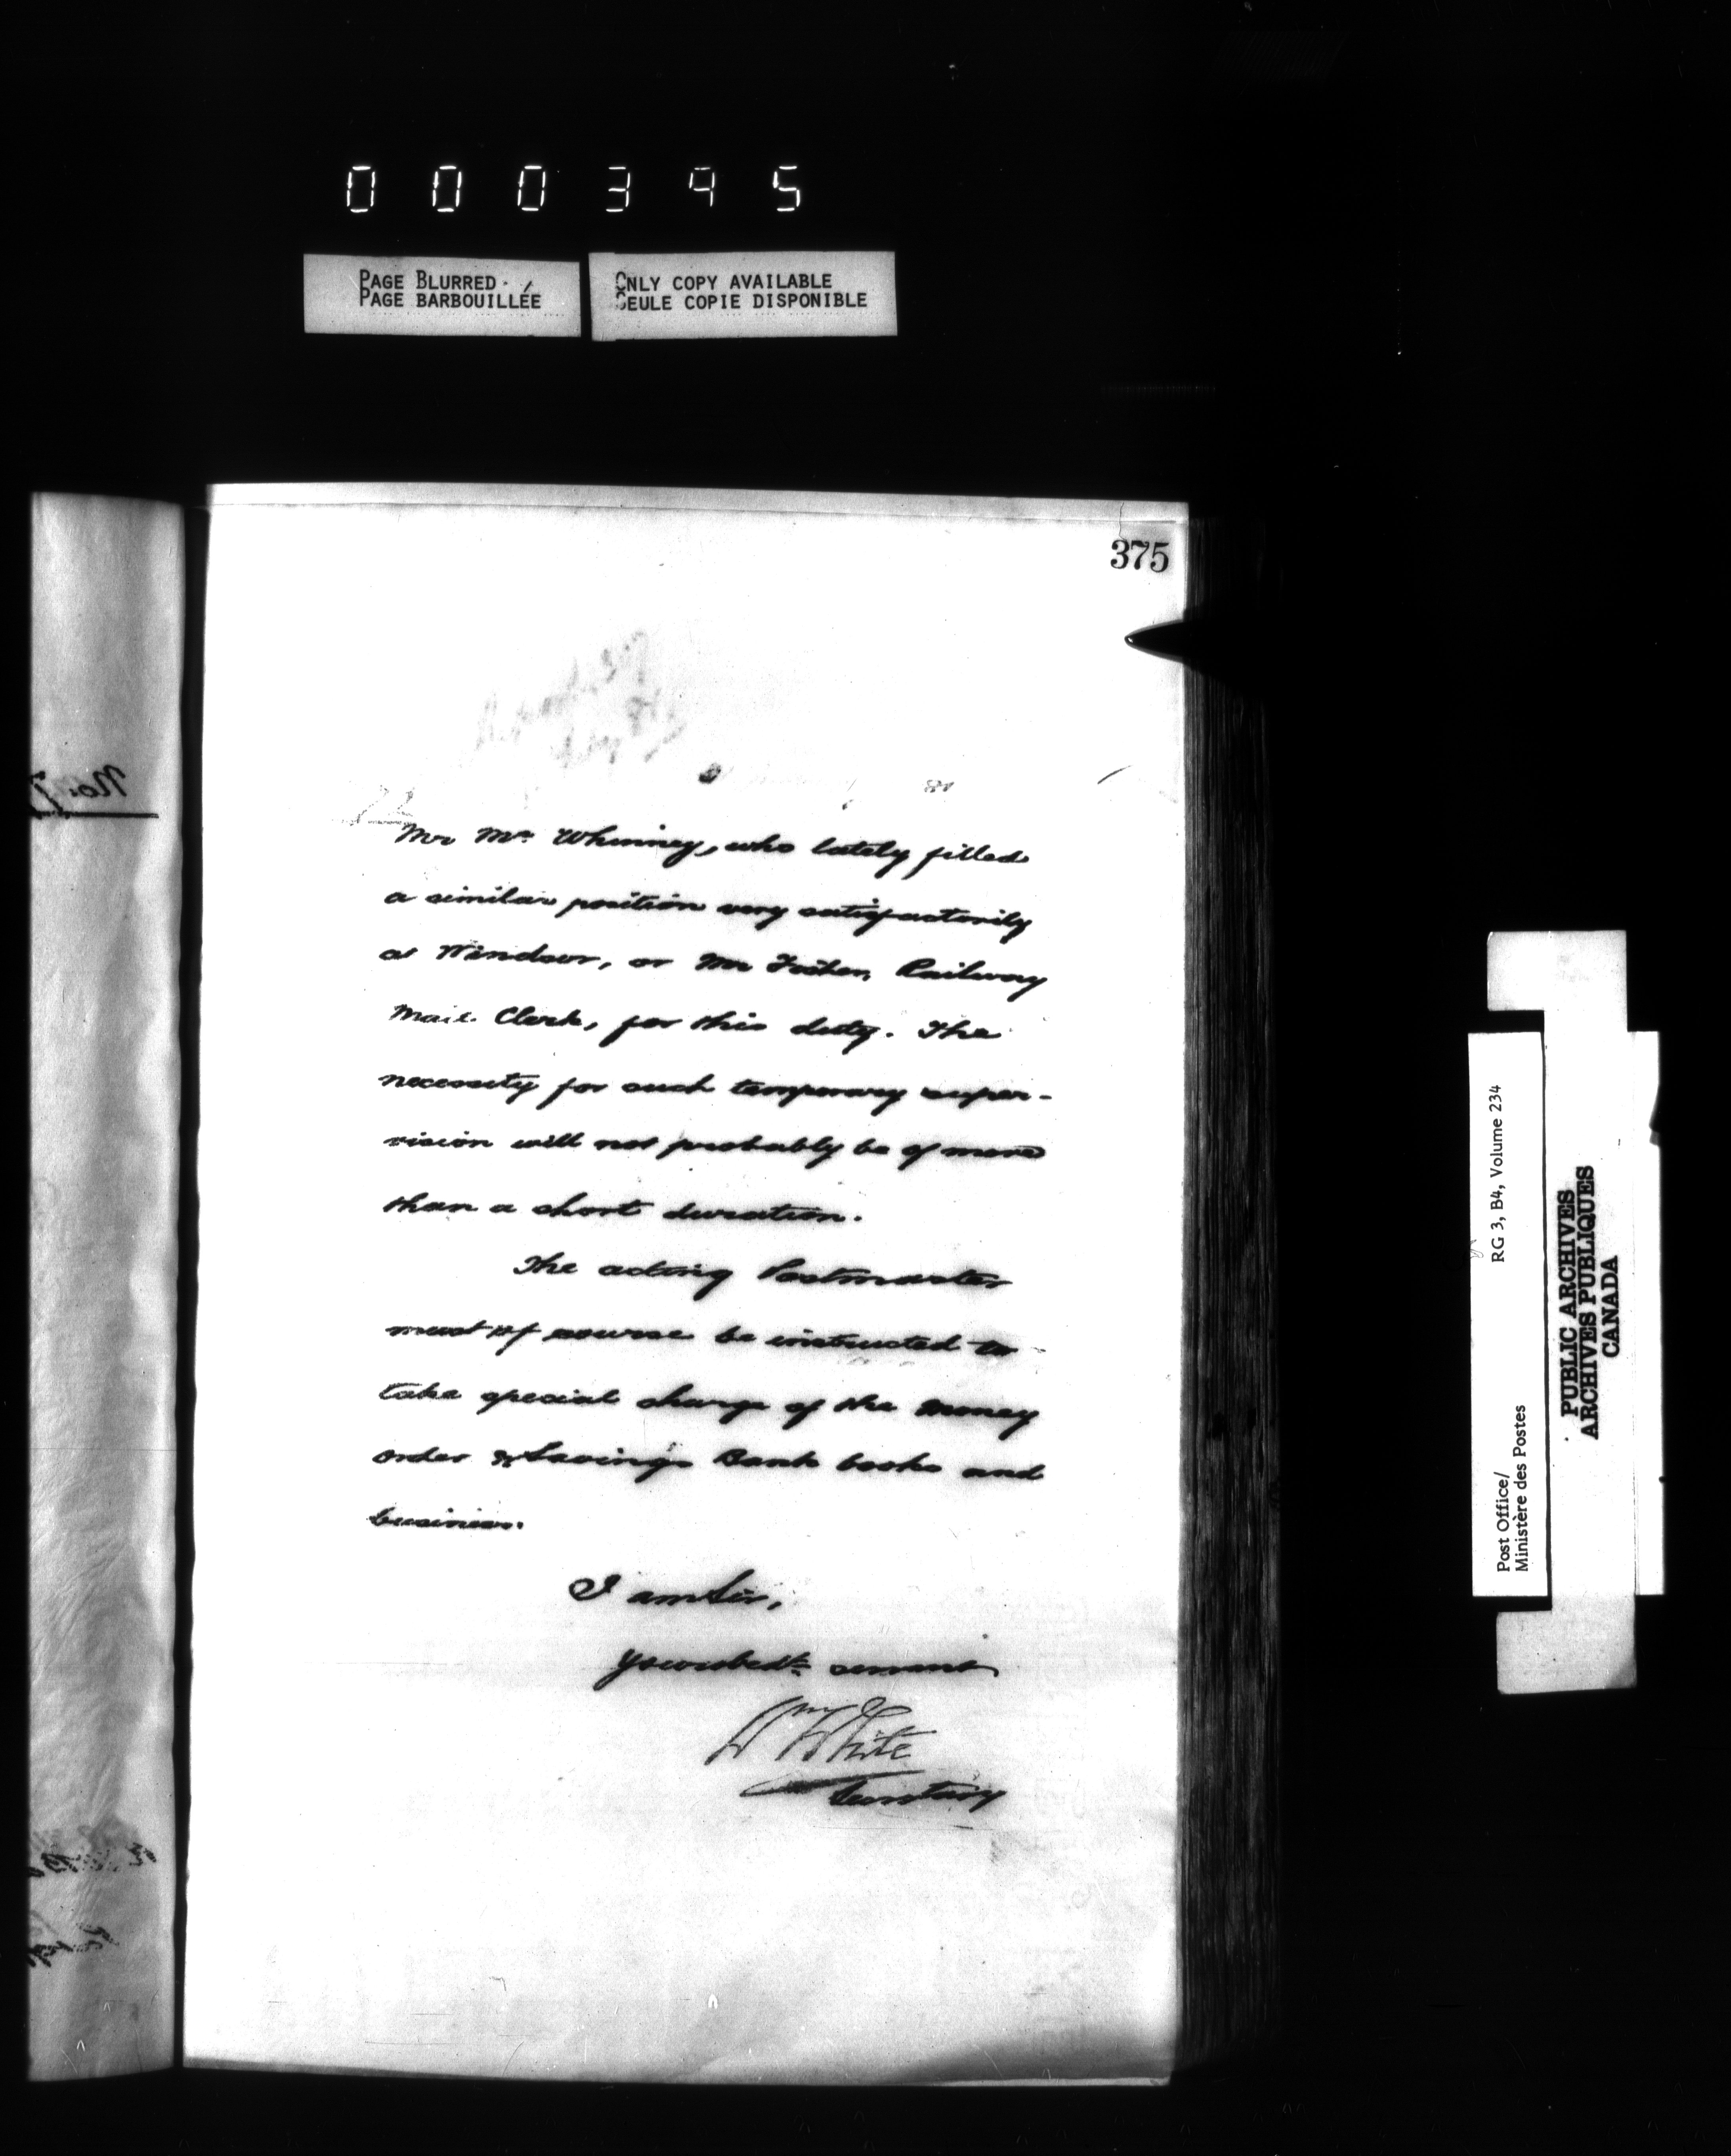 000395
PAGE BLURRED
PAGE BARBOUILLÉE
ONLY COPY AVAILABLE
SEULE COPIE DISPONIBLE
375
Mr Mc Whinney, who lately filled
a similar position very satisfactorily
at Windsor, or Mr Fisher, Railway
Mail Clerk, for this duty. The
necessity for such temporary super-
vision will not probably be of more
than a short duration.
The acting Postmaster
must of course be instructed to
take special charge of the money
order & Savings Bank books and
business.
I am Sir,
Your obedt. servant
Wm White
Secretary
RG 3, B4, Volume 234
Post Office/
Ministère des Postes
PUBLIC ARCHIVES
ARCHIVES PUBLIQUES
CANADA